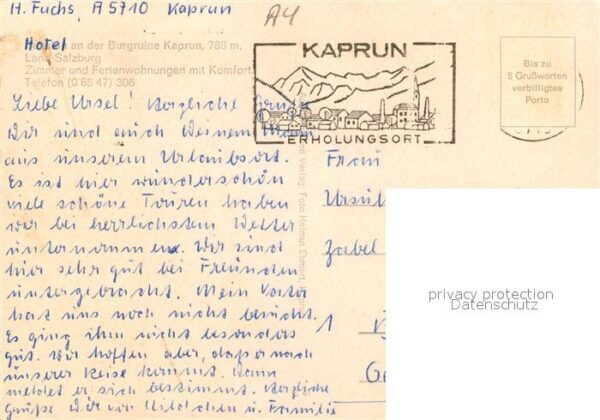 H. Fuchs, A 5710 Kaprun
A4
Hotel
an der Burgruine Kaprun, 786 m,
Land Salzburg
Zimmer und Ferienwohnungen mit Komfort
Telefon (0 65 47) 306
KAPRUN
ERHOLUNGSORT
Bis zu
5 Grußworten
verbilligtes
Porto
Liebe Ursel! Herzliche Grüße
Dir und auch Deinem Mann
aus unserem Urlaubsort.
Es ist hier wunderschön
viele schöne Touren haben
wir bei herrlichstem Wetter
unternommen. Wir sind
hier sehr gut bei Freunden
untergebracht. Mein Vater
hat uns noch nicht besucht.
Es ging ihm nicht besonders
gut. Wir hoffen aber, daß er nach
unserer Reise kommt. Dann
meldet er sich bestimmt. Herzliche
Grüße Dir von Hildchen u. Familie
Verlag: Foto Helmut
Frau
Zabel
1
privacy protection
Datenschutz